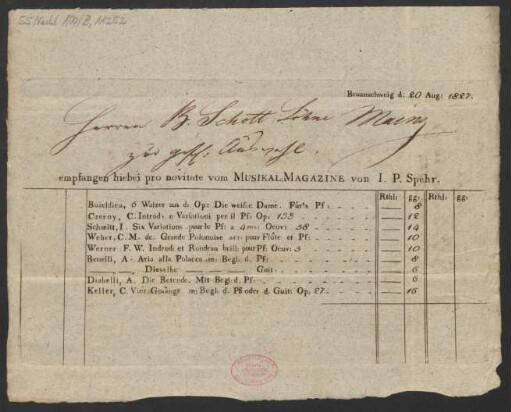 55 Nachl 100/B, 11252
Braunschweig d: 20 Aug: 1827.
Herren B. Schott Söhne Mainz
zur gefl: Auswahl.
empfangen hiebei pro novitate vom MUSIKAL-MAGAZINE von I. P. Spehr.
Rthl: gg: Rthl: gg:
Boieldieu, 6 Walzer aus d: Op: Die weiße Dame. Für's Pf: 8
Czerny, C. Introd: e Variationi per il Pf: Op: 133 12
Schmitt, I. Six Variations pour le Pf: a 4ms: Oeuv: 38 14
Weber, C. M. de. Grande Polonoise arr: pour Flûte et Pf: 10
Werner F. W. Introd: et Rondeau brill: pour Pf: Oeuv: 3 10
Benelli, A. Aria alla Polacca m: Begl: d. Pf: 8
Dieselbe Guit: 6
Diabelli, A. Die Betende. Mit Begl: d. Pf: 6
Keller, C. Vier Gesänge m: Begl: d. Pf: oder d. Guit: Op. 27 16